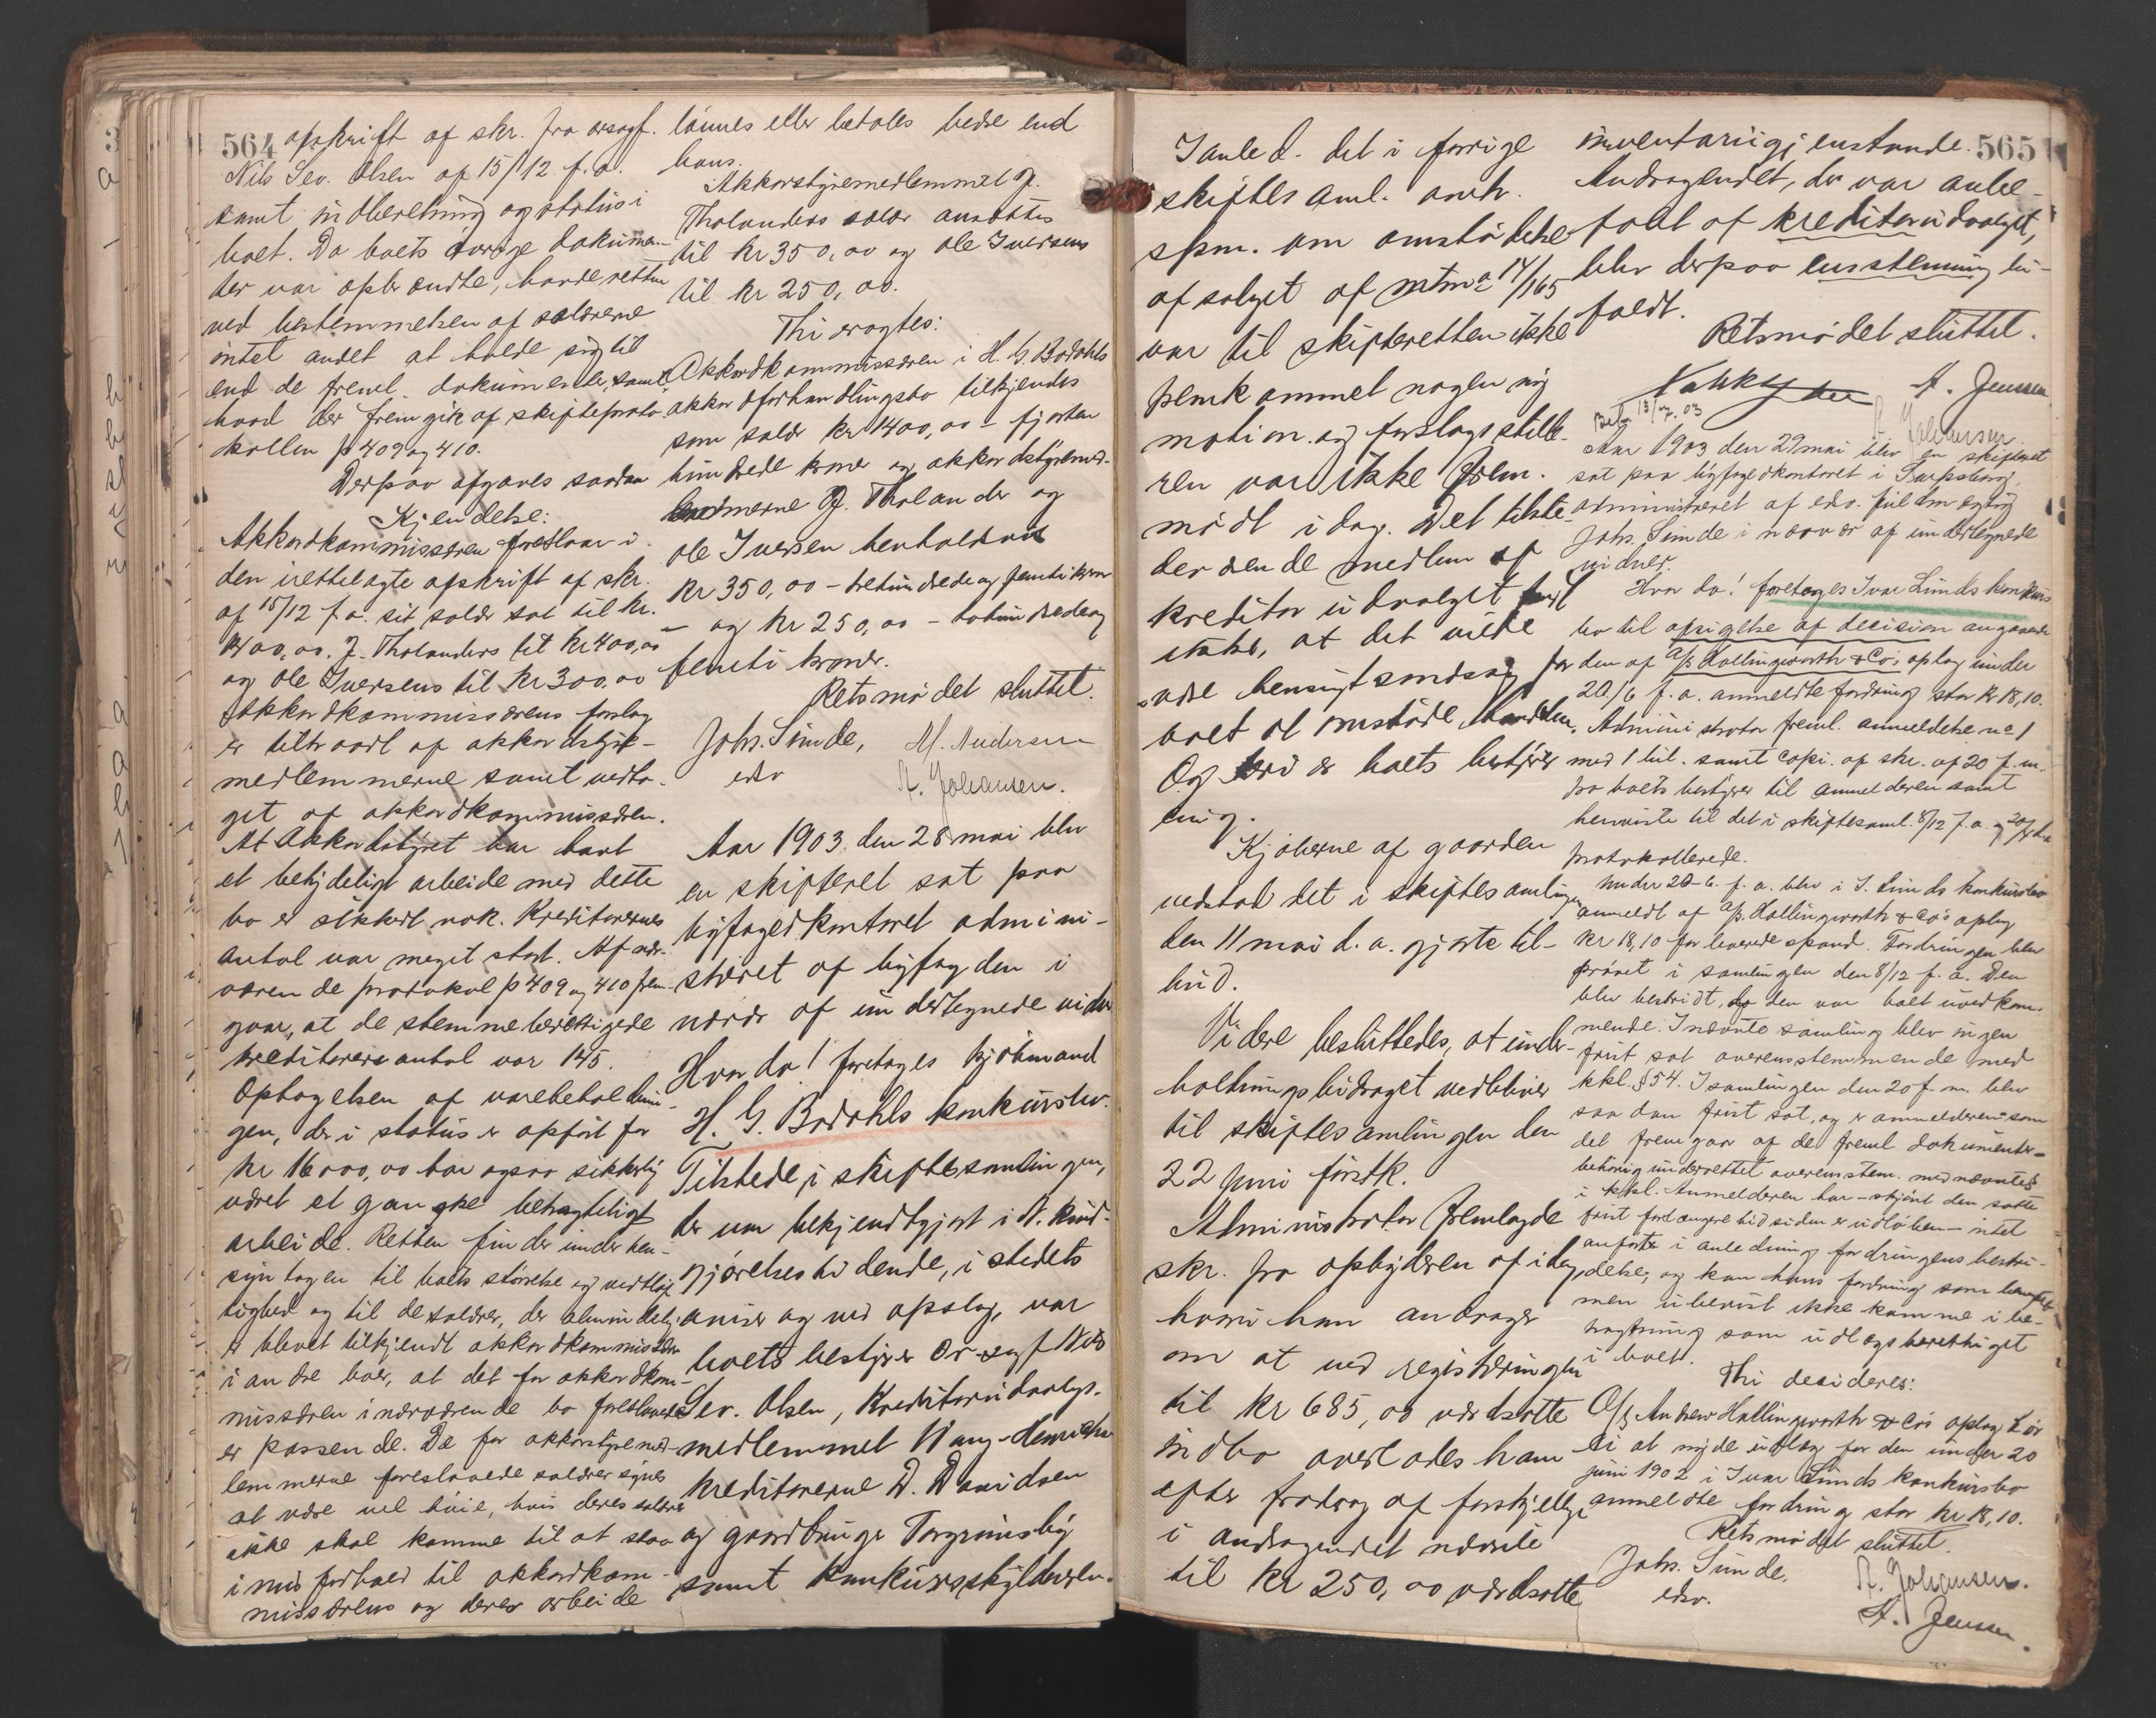 564
afskrift af skr. fra orsagf.
Nils Sev. Olsen af 15/12 f.a.
samt indberetning og status i
boet. Da boets øvrige dokumen-
ter var opbrændte, havde retten
ved bestemmelsen af salærerne
intet andet at holde sig til
end de freml. dokumenter, samt
hvad der fremgik af skifteproto-
kollen p 409 og 410.
Derpaa afgaves saadan
Kjendelse:
Akkordkommissæren foreslaar i
den irettelagte afskrift af skr.
af 15/12 f.a. sit salær sat til kr.
1400,00. J. Tholanders til kr 400,00
og Ole Iversens til kr 300,00
Akkordkommissærens forslag
er tiltraadt af akkordstyre-
medlemmerne samt vedta-
get af akkordkommissæren.
At Akkordstyret har havt
et betydeligt arbeide med dette
bo er sikkert nok. Kreditorernes
antal var meget stort. Af nær-
værende protokol p 409 og 410 frem-
gaar, at de stemmeberettigede
kreditorers antal var 145.
Optagelsen af varebeholdnin-
gen, der i status er opført for
kr 16000,00 har ogsaa sikkerlig
været et ganske betragteligt
arbeide. Retten finder under hen-
syn tagen til boets størrelse og vidtløf-
tighed og til de salærer, der almindelig
er blevet tilkjendt akkordkommissærer
i andre boer, at det for akkordkom-
missæren i nærværende bo foreslaaede
er passende. De for akkordstyremed-
lemmerne foreslaaede salærer synes
at være vel høie, hvis deres salærer
ikke skal komme til at staa
i mis forhold til akkordkom-
missærens og deres arbeide
lønnes eller betales bedre end
hans.
Akkordstyremedlemmet J.
Tholanders salær ansættes
til kr 350,00 og Ole Iversens
til kr 250,00.
Thi eragtes:
Akkordkommissæren i H. G. Bodahls
akkordforhandlingsbo tilkjendes
som salær kr 1400,00 – fjorten
hundrede kroner og akkordstyremed-
lemmerne J. Tholander og
Ole Iversen henholdsvis
kr 350,00 – trehundrede og femti kroner
– og kr 250,00 – tohundrede og
femti kroner.
Retsmødet sluttet.
Johs. Sunde, M. Andersen
edsv A. Johansen.
Aar 1903 den 28 mai blev
en skifteret sat paa
byfogedkontoret admini-
streret af byfogden i
nærvær af undertegnede vidner
Hvor da! foretoges kjøbmand
H. G. Bodahls konkursbo.
Tilstede i skiftesamlingen,
der var bekjendtgjort i N. Kund-
gjørelsestidende, i stedets
aviser og ved opslag, var
boets bestyrer Or sagf Nils
Sev. Olsen, Kreditorudvalgs-
medlemmet
kreditorerne D. Davidsen
og gaardbruger Torgrimsby
samt konkursskylderen.
565
I anled. det i forrige
skiftesaml. omh.
spm. om omstødelse
af salget af matr. no 14/165
var til skifteretten ikke
fremkommet nogen ny
motion og forslagsstille-
ren var ikke frem-
mødt idag. Det tilste-
deværende medlem af
kreditorudvalget
udtalte, at det vilde
være hensigtsmæssig for
boet at omstøde handelen.
Og er boets bestyrer
enig.
Kjøberne af gaarden
vedstod det i skiftesamlingen
den 11 mai d.a. gjorte til-
bud.
Videre besluttedes, at under-
holdningsbidraget vedbliver
til skiftesamlingen den
22 juni førstk.
Administrator fremlagde
skr. fra opbyderen af idag,
hvori han andrager
om at ved registreringen
til kr 685,00 værdsatte
indbo overlades ham
efter fradrag af forskjellige
i andragendet nævnte
til kr 250,00 værdsatte
inventariigjenstande.
Andragendet, der var anbe-
falt af kreditorudvalget,
blev derpaa enstemmig bi-
faldt.
Retsmødet sluttet.
A. Jensen
A. Johansen.
Aar 1903 den 29 mai blev en skifteret
sat paa byfogedkontoret i Sarpsborg,
administreret af edsv. fuldmægtig
Johs. Sunde i nærvær af undertegnede
vidner.
Hvor da! foretoges Ivar Lunds konkurs-
bo til afsigelse af decision angaaende
den af A/S Hollingworth & Co's oplag under
20/6 f.a. anmeldte fordring stor kr 18,10.
Administrator freml. anmeldelse no 1
med 1 bil. samt copi. af skr. af 20 f.m.
fra boets bestyrer til anmelderen samt
henviste til det i skiftesaml. 8/12 f.a. og
protokollerede.
Under 20-6. f.a. blev i I. Lunds konkursbo
anmeldt af A/S Hollingworth & Co's oplag
kr 18,10 for leverede spand. Fordringen blev
prøvet i samlingen den 8/12 f.a. Den
blev bestridt, da den var boet uvedkom-
mende. I nævnte samling blev ingen
frist sat overensstemmende med
kkl. § 54. I samlingen den 20 f.m. blev
saadan frist sat, og er anmelderen som
det fremgaar af de freml. dokumenter
behørig underrettet overensstem. med nævnte §
i kkl. Anmelderen har – skjønt den satte
frist for længere tid siden er udløben – intet
anført i anledning fordringens bestri-
delse, og kan hans fordring som
men ubevist ikke komme i be-
tragtning som udlægsberettiget
i boet.
Thi decideres:
A/S Andrew Hollingworth & Co's oplag bør
ei at nyde udlæg for den under 20
juni 1902 i Ivar Lunds konkursbo
anmeldte fordring stor kr 18,10.
Retsmødet sluttet.
Johs. Sunde,
edsv.
A. Johansen.
A. Jensen.